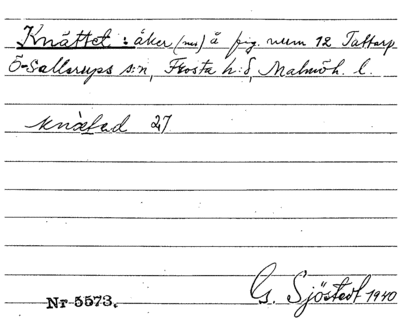 Knättet: åker (nu) å fig. num 12 Tattarp
Ö-Sallerups s:n, Frosta h:d, Malmöh. l.
knätad 27
Nr 5573.
G. Sjöstedt 1940